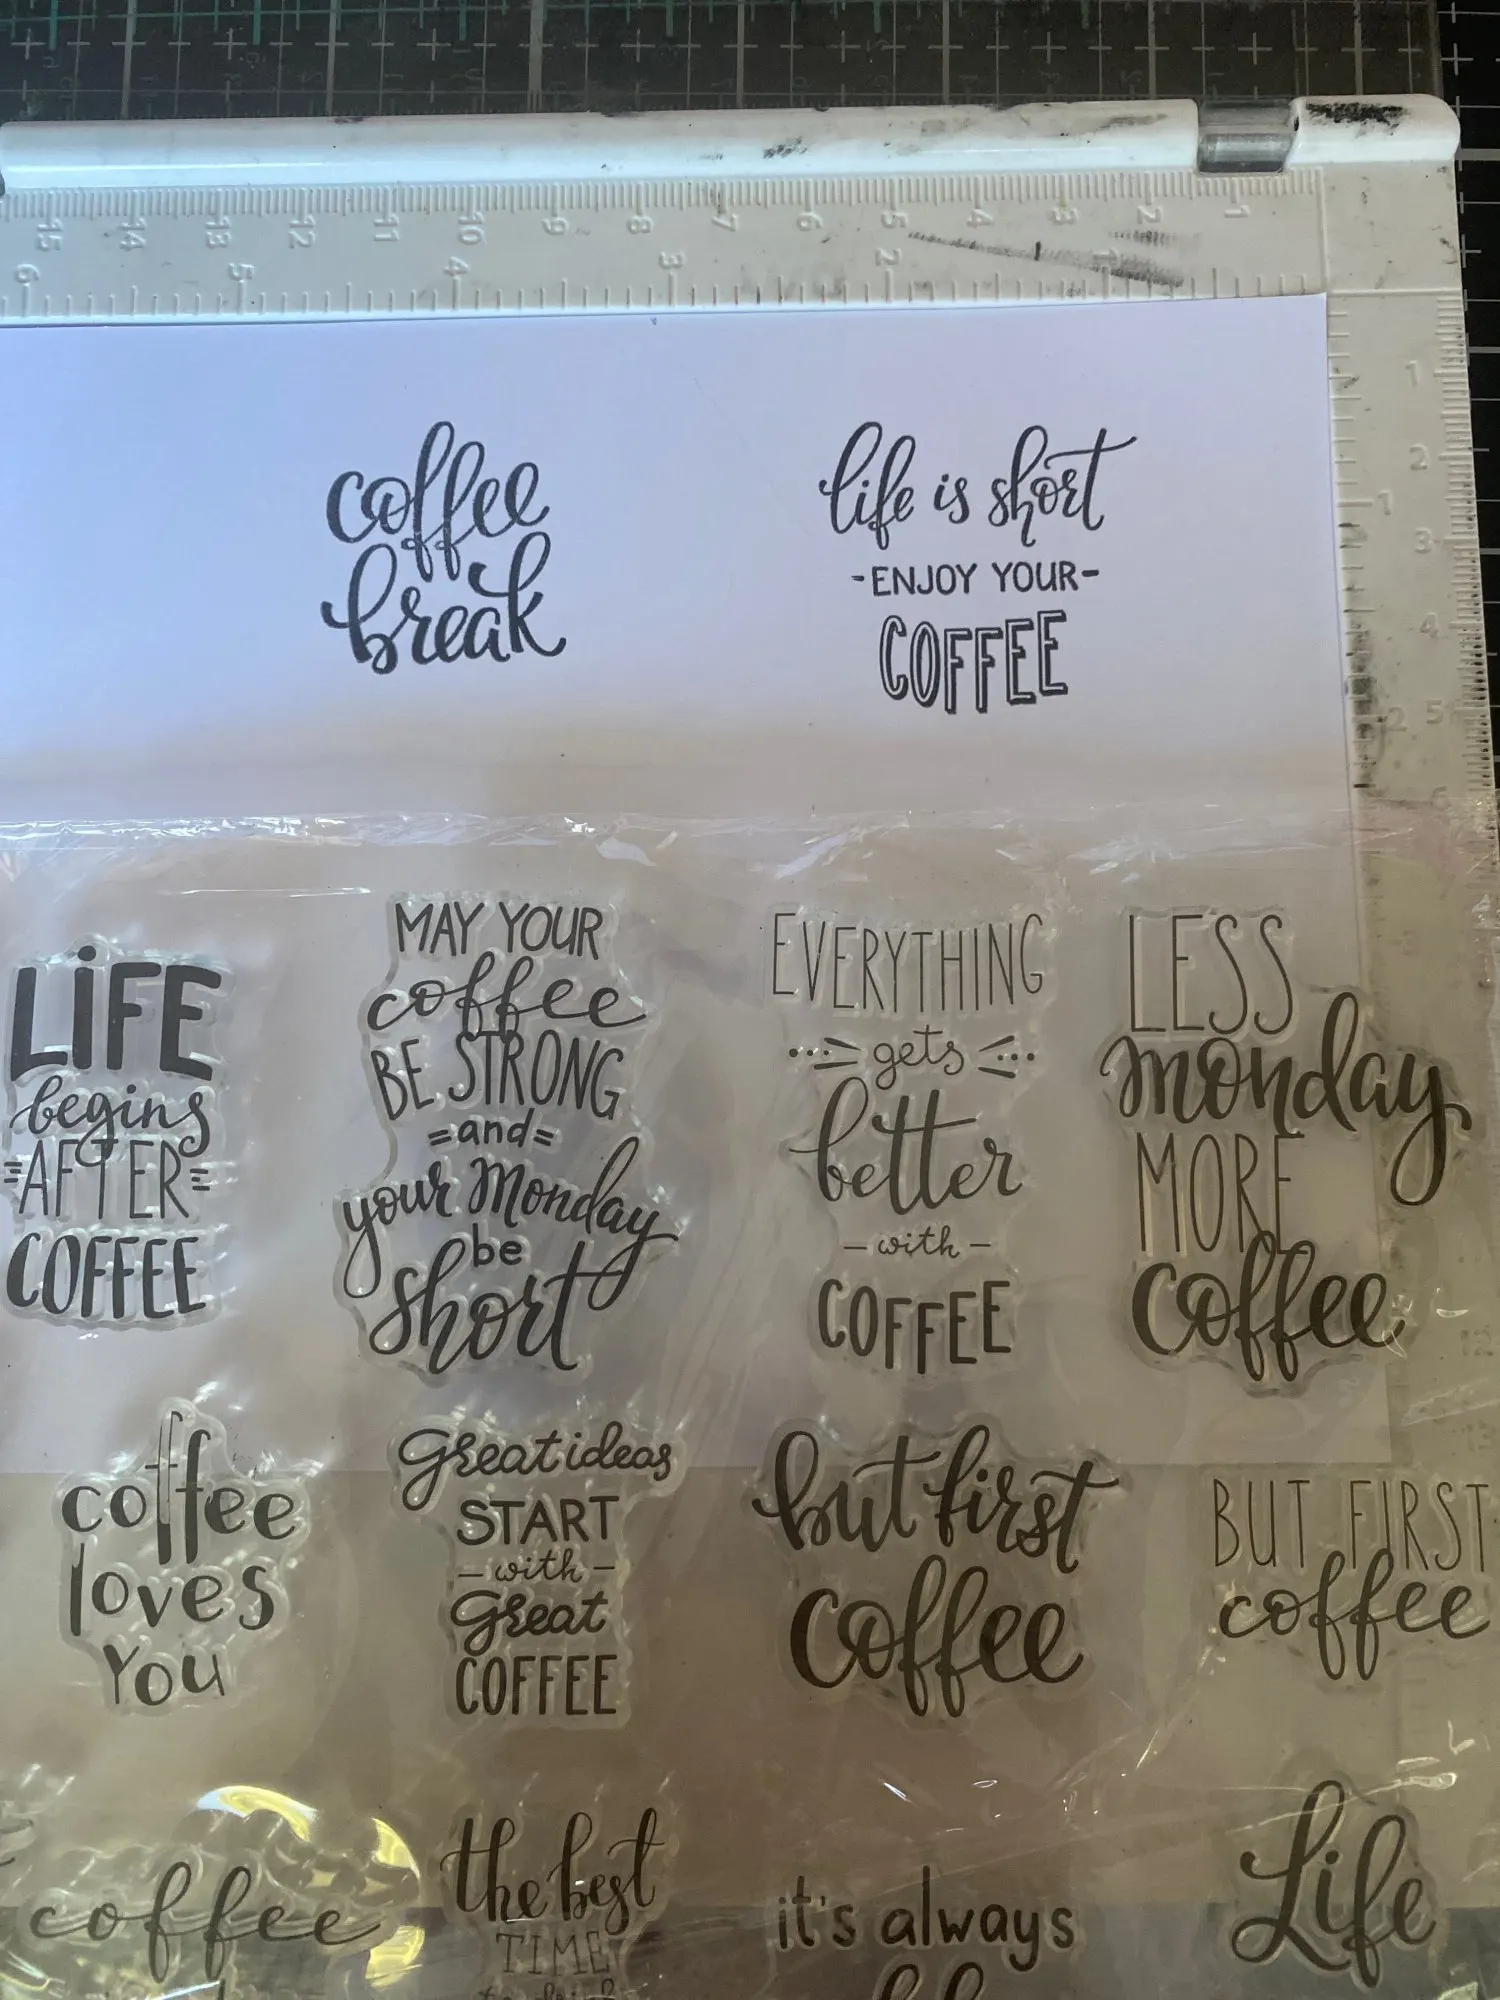 15 14 13 12 11 10 9 8 7 6 5 4 3 2 1
6 5 4 3 2 1
1
2
1
3
4
2 5
6
coffee
break
life is short
-ENJOY YOUR-
COFFEE
LiFE
begins
=AFTER=
COFFEE
MAY YOUR
coffee
BE STRONG
=and=
your Monday
be
short
EVERYTHING
gets
better
- with -
COFFEE
LESS
monday
MORE
coffee
coffee
loves
You
Great ideas
START
- with -
Great
COFFEE
but first
coffee
BUT FIRST
coffee
coffee
the best
TIME
it's always
Life